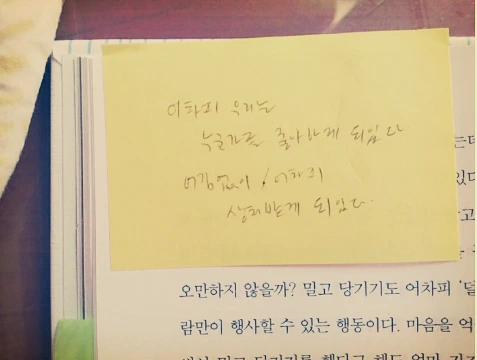 어차피 우리는
누군가를 좋아하게 되있다
어김없이 / 어차피
상처받게 되있다.
는데
있다
고
오만하지 않을까? 밀고 당기기도 어차피 '덜
람만이 행사할 수 있는 행동이다. 마음을 억